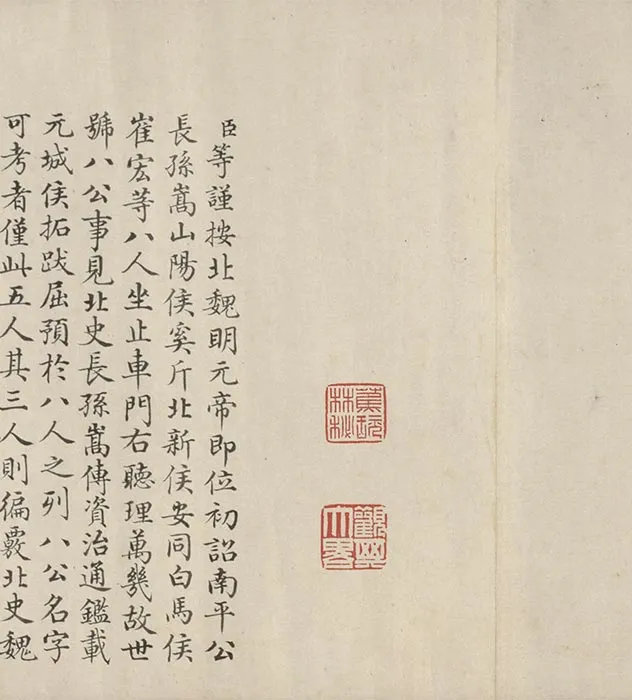 蕉林秘玩
觀其大略
臣等謹按北魏明元帝即位初詔南平公
長孫嵩山陽侯奚斤北新侯安同白馬侯
崔宏等八人坐止車門右聽理萬幾故世
號八公事見北史長孫嵩傳資治通鑑載
元城侯拓跋屈預於八人之列八公名字
可考者僅此五人其三人則徧覈北史魏